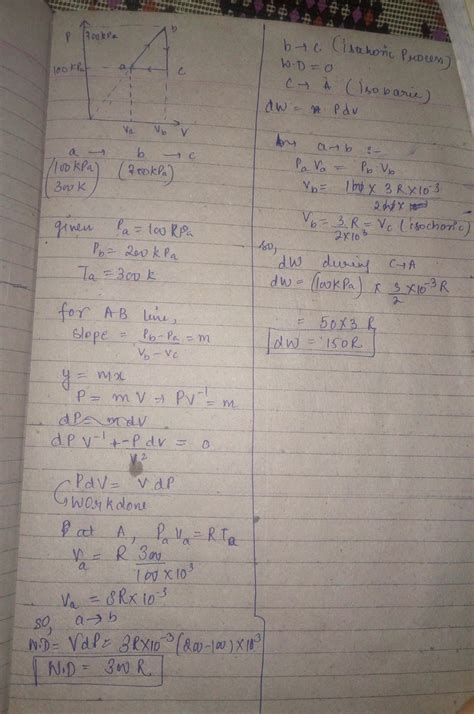 P
200kPa
b
100kPa
a
c
Va
Vb
V
a → b → c
(100kPa
300k) (200kPa)
given Pa = 100kPa
Pb = 200kPa
Ta = 300k
for AB line,
slope = Pb - Pa / Vb - Vc = m
y = mx
P = mV ⇒ PV⁻¹ = m
dP = mdV
dP V⁻¹ + -P dv / V² = 0
PdV = VdP
workdone
at A, Pa Va = RTa
Va = R 300 / 100×10³
Va = 3R×10⁻³
so, a → b
W.D = VdP = 3R×10⁻³ (200-100)×10³
W.D = 300R
b → c (isochoric Process)
W.D = 0
c → A (isobaric)
dW = Pdv
a → b :-
Pa Va = Pb Vb
Vb = 100 × 3R×10⁻³ / 200
Vb = 3R / 2×10³ = Vc (isochoric)
so,
dW during C→A
dW = (100kPa) × 3/2 ×10⁻³R
= 50×3 R
dW = 150R